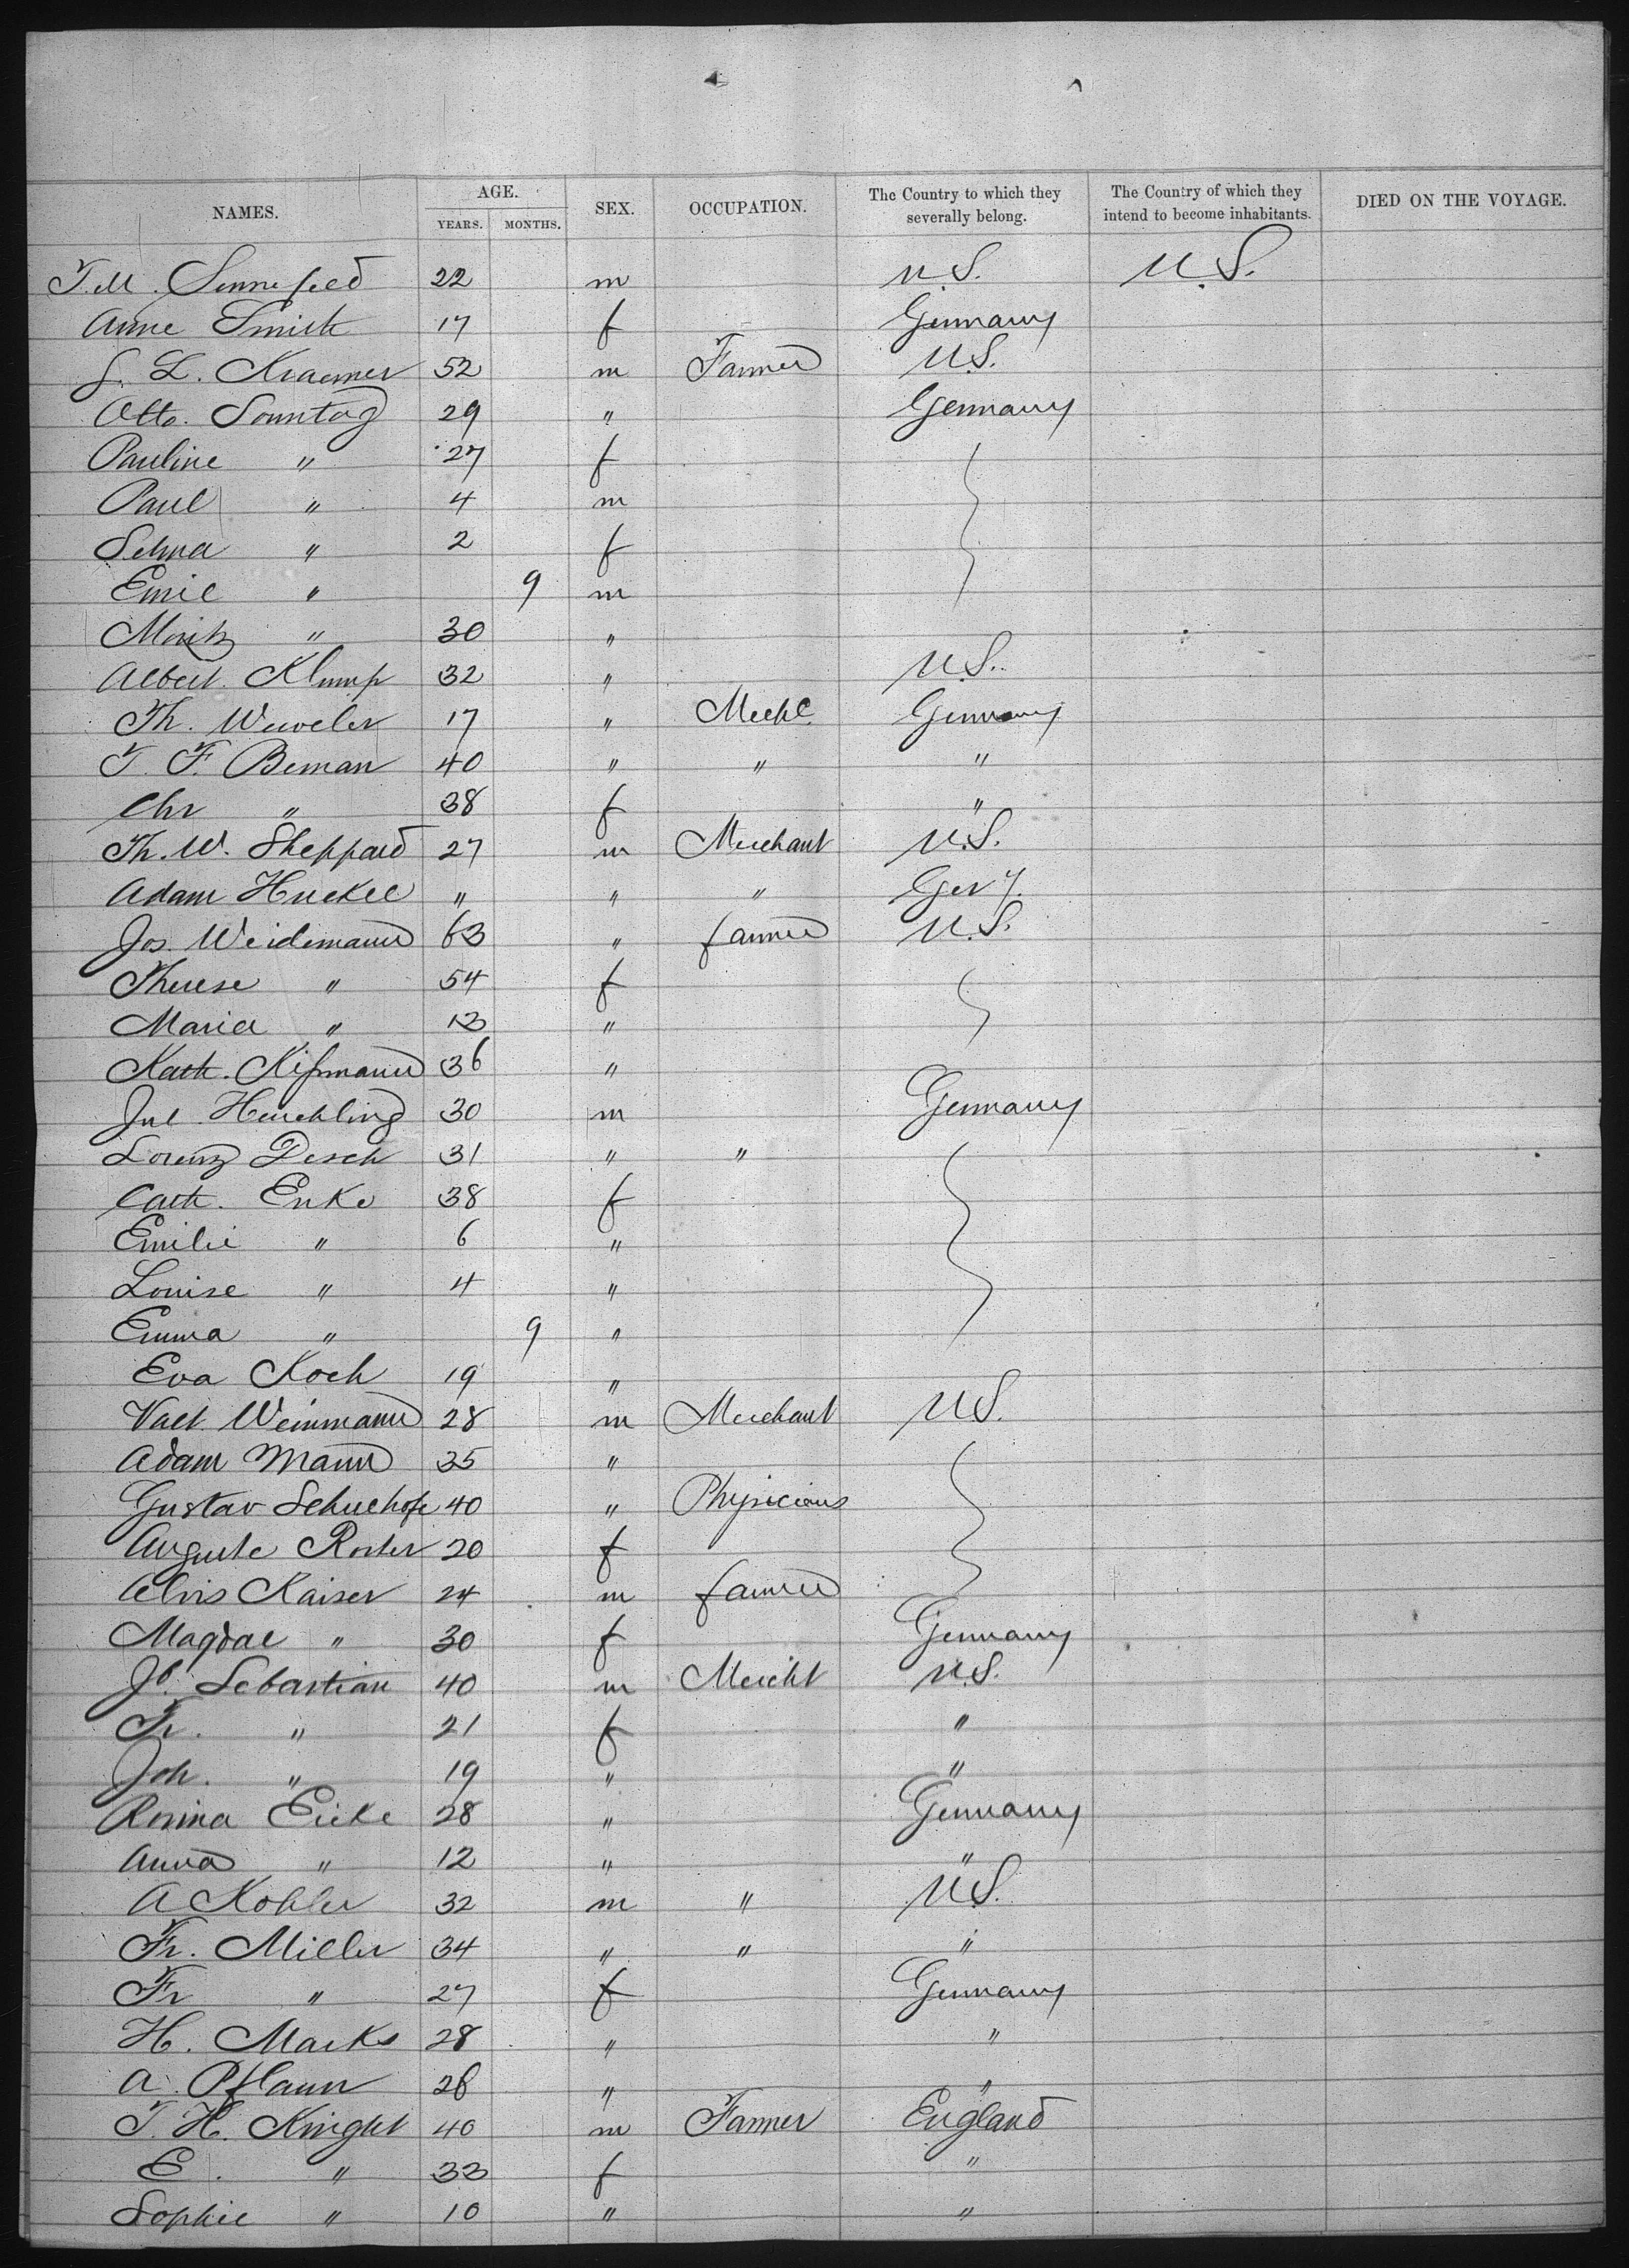 NAMES. AGE. SEX. OCCUPATION. The Country to which they severally belong. The Country of which they intend to become inhabitants. DIED ON THE VOYAGE.
YEARS. MONTHS.
T. M. 22 m U.S. U.S.
Anne Smith 17 f Germany
L. Kraemer 52 m Farmer U.S.
Otto. Sonntag 29 " Germany
Pauline " 27 f
Paul " 4 m
Selma " 2 f
Emil " 9 m
Moritz " 30 "
Albert Klump 32 " U.S.
Th. 17 " Germany
T. F. Beman 40 " " "
Chr " 38 f "
Th. W. Sheppard 27 m Merchant U.S.
Adam Huckel " " " Ger y.
Jos. Weidemann 63 " farmer U.S.
Therese " 54 f
Maria " 13 "
Kath. Kißmann 36 "
Jul. 30 m Germany
Lorenz Desch 31 " "
Cath. Enke 38 f
Emilie " 6 "
Louise " 4 "
Emma " 9 "
Eva Koch 19 "
Valt. Weinmann 28 m Merchant U.S.
Adam Mann 35 "
Gustav 40 " Physicians
Auguste 20 f
Alois Kaiser 24 m farmer
Magdal " 30 f Germany
Sebastian 40 m Mercht U.S.
Fr. " 21 f "
Joh. " 19 " "
Rosina Eicke 28 " Germany
Anna " 12 " "
A Kohler 32 m " U.S.
Fr. Miller 34 " " "
Fr " 27 f Germany
H. Marks 28 " "
A. Pflaum 28 " "
T. H. Knight 40 m Farmer England
E. " 33 f "
Sophie " 10 " "